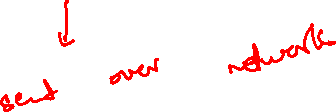 send over network